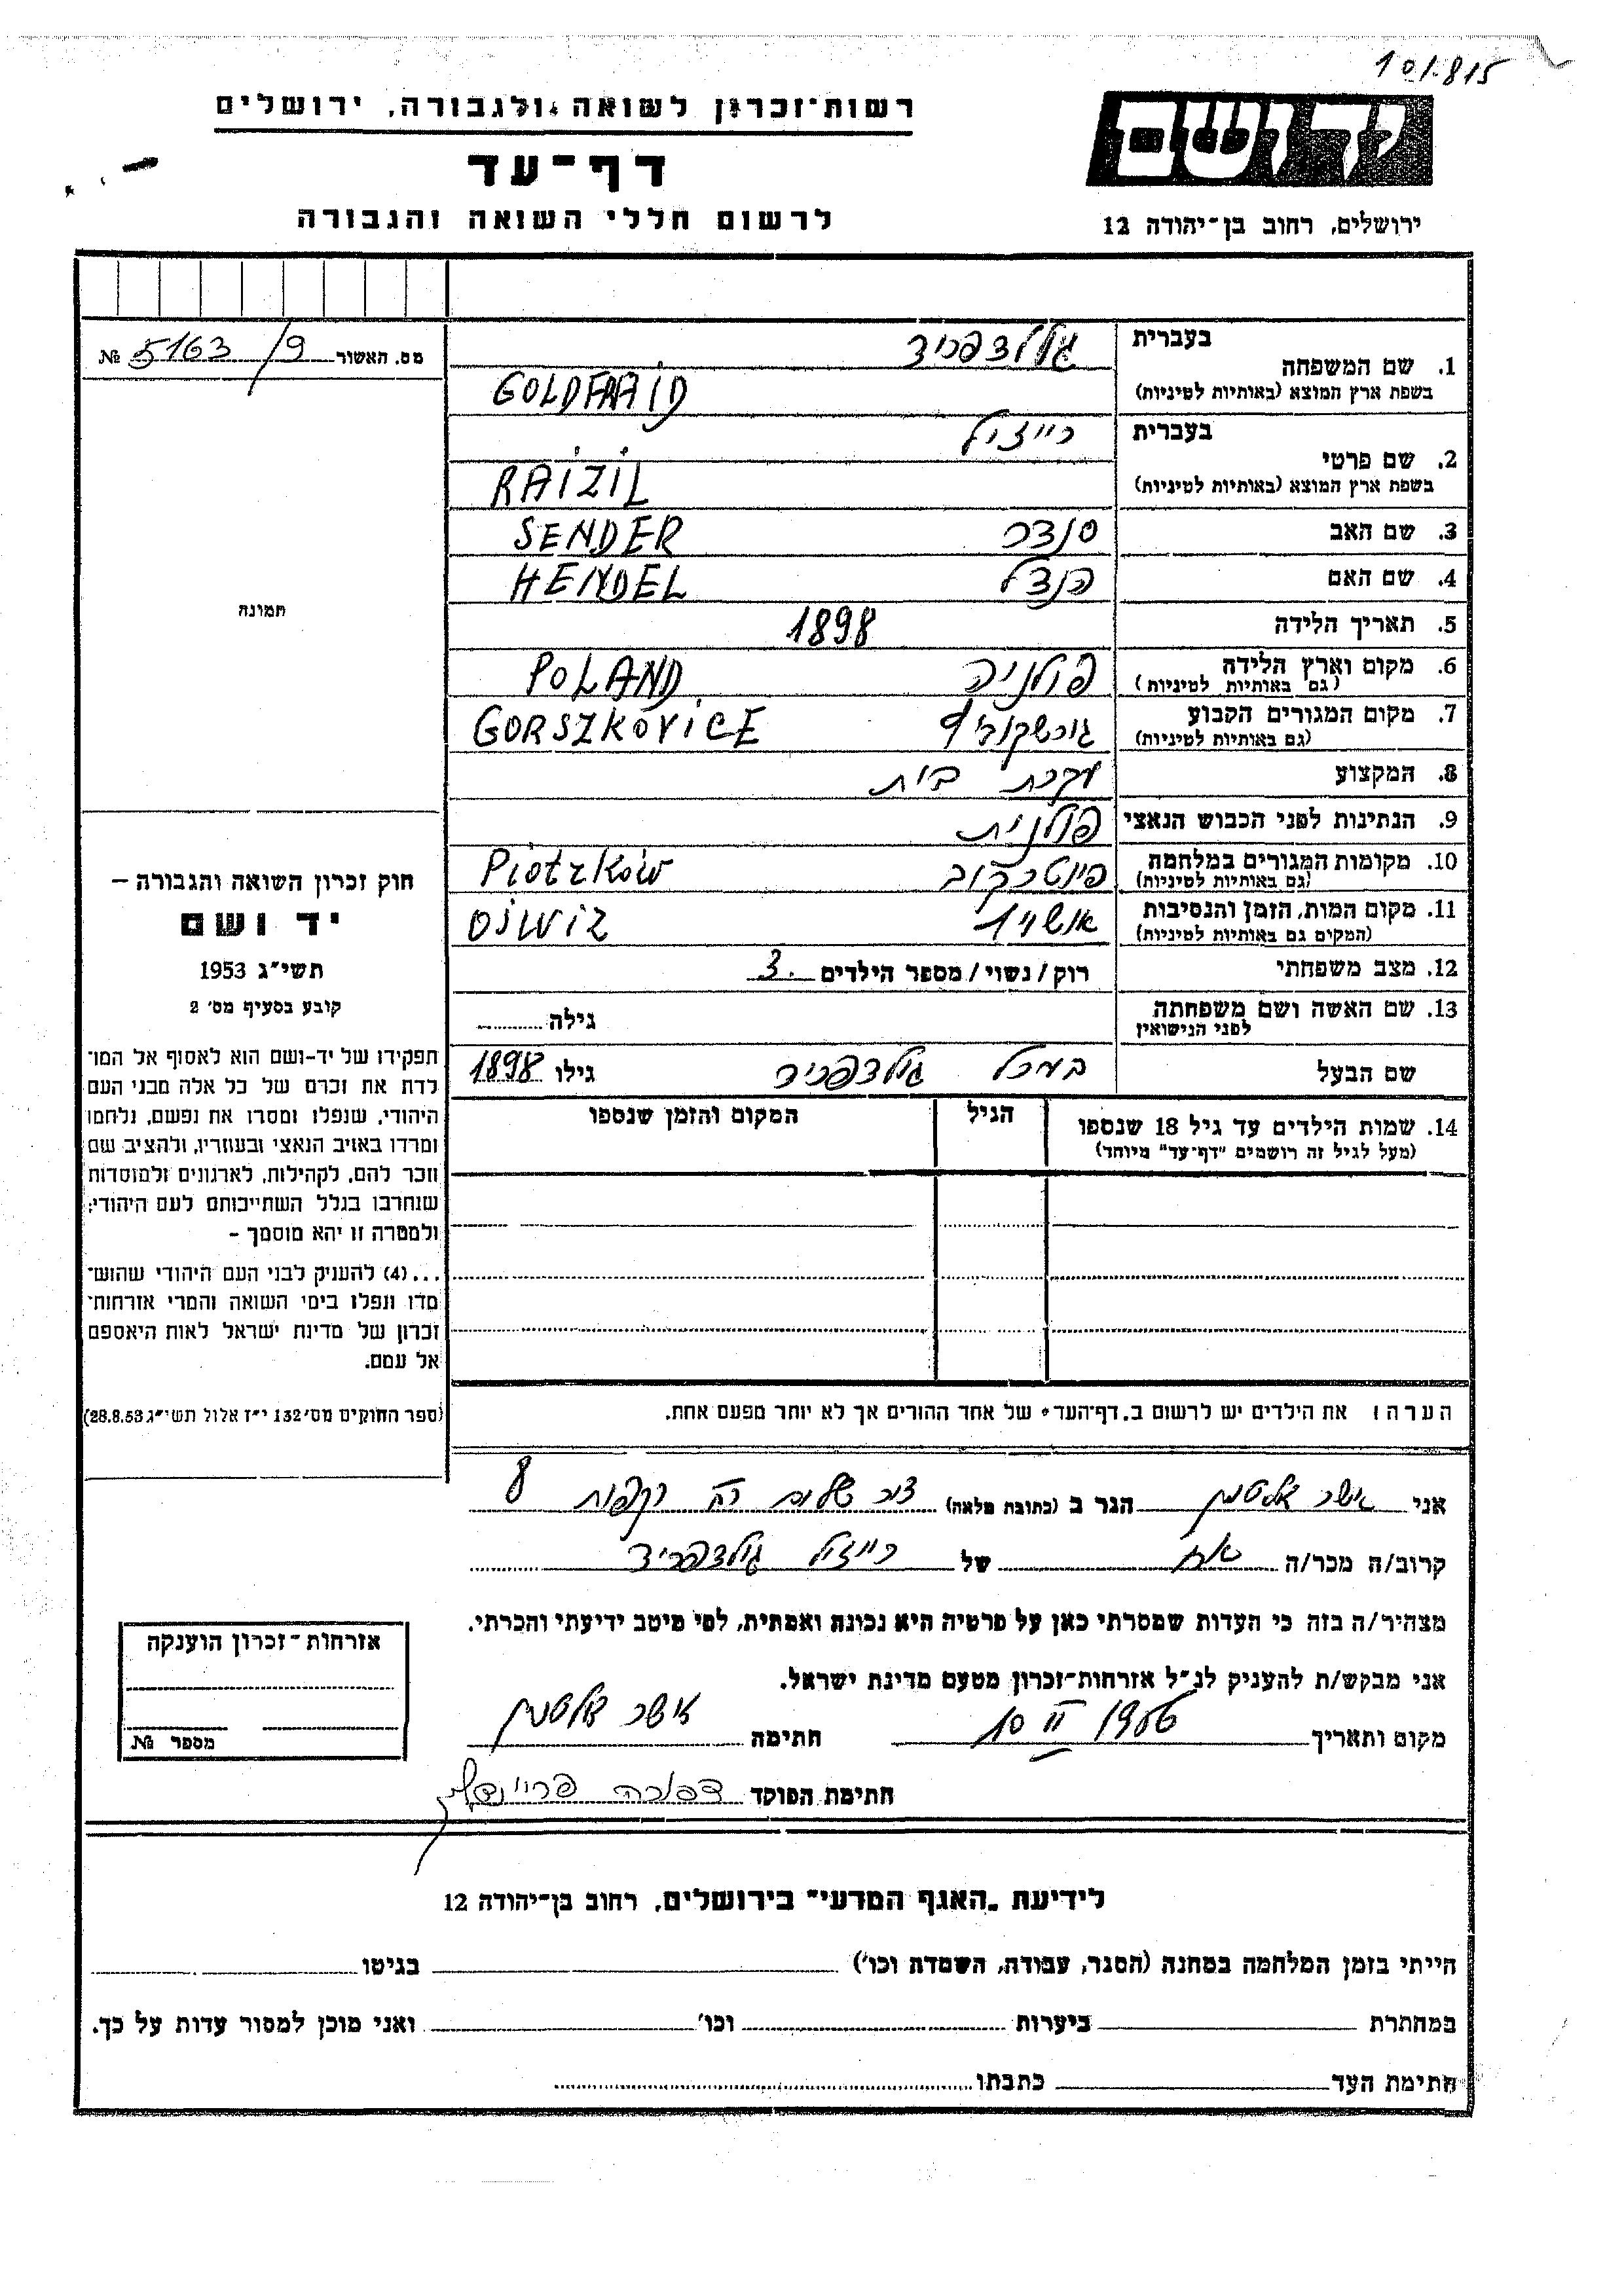 101.815
יד ושם
ירושלים, רחוב בן־יהודה 12
רשות־זכרון לשואה ולגבורה, ירושלים
דף־עד
לרשום חללי השואה והגבורה
מס. האשור 5163/9 №
תמונה
חוק זכרון השואה והגבורה –
יד ושם
תשי״ג 1953
קובע בסעיף מס׳ 2
תפקידו של יד-ושם הוא לאסוף אל המו־
לדת את זכרם של כל אלה מבני העם
היהודי, שנפלו ומסרו את נפשם, נלחמו
ומרדו באויב הנאצי ובעוזריו, ולהציב שם
וזכר להם, לקהילות, לארגונים ולמוסדות
שנחרבו בגלל השתייכותם לעם היהודי;
ולמטרה זו יהא מוסמך –
...(4) להעניק לבני העם היהודי שהוש־
מדו ונפלו בימי השואה והמרי אזרחות־
זכרון של מדינת ישראל לאות היאספם
אל עמם.
(ספר החוקים מס׳ 132 י״ז אלול תשי״ג 28.8.53)
בעברית גולדפריד
1. שם המשפחה
בשפת ארץ המוצא (באותיות לטיניות) GOLDFRAID
בעברית רייזיל
2. שם פרטי
בשפת ארץ המוצא (באותיות לטיניות) RAIZIL
3. שם האב סנדר SENDER
4. שם האם הנדל HENDEL
5. תאריך הלידה 1898
6. מקום וארץ הלידה פולניה POLAND
(גם באותיות לטיניות)
7. מקום המגורים הקבוע GORSZKOVICE
(גם באותיות לטיניות)
8. המקצוע עקרת בית
9. הנתינות לפני הכבוש הנאצי פולנית
10. מקומות המגורים במלחמה פיוטרקוב Piotrków
(גם באותיות לטיניות)
11. מקום המות, הזמן והנסיבות אושויץ
(המקום גם באותיות לטיניות)
12. מצב משפחתי רוק/נשוי/מספר הילדים 3.
13. שם האשה ושם משפחתה גילה
לפני הנישואין
שם הבעל גולדפריד גילו 1898
14. שמות הילדים עד גיל 18 שנספו הגיל המקום והזמן שנספו
(מעל לגיל זה רושמים ״דף־עד״ מיוחד)
הערה: את הילדים יש לרשום ב״דף־העד״ של אחד ההורים אך לא יותר מפעם אחת.
אני אלטמן הגר ב (כתובת מלאה) 8
קרוב/ה מכר/ה אח של רייזיל גולדפריד
מצהיר/ה בזה כי העדות שמסרתי כאן על פרטיה היא נכונה ואמתית, לפי מיטב ידיעתי והכרתי.
אני מבקש/ת להעניק לנ״ל אזרחות־זכרון מטעם מדינת ישראל.
מקום ותאריך 10 II 1956 חתימה אלטמן
חתימת הפוקד
אזרחות־זכרון הוענקה
מספר №
לידיעת ״האגף המדעי״ בירושלים, רחוב בן־יהודה 12
הייתי בזמן המלחמה במחנה (הסגר, עבודה, השמדה וכו׳) בגיטו
במחתרת ביערות וכו׳ ואני מוכן למסור עדות על כך.
חתימת העד כתבתו